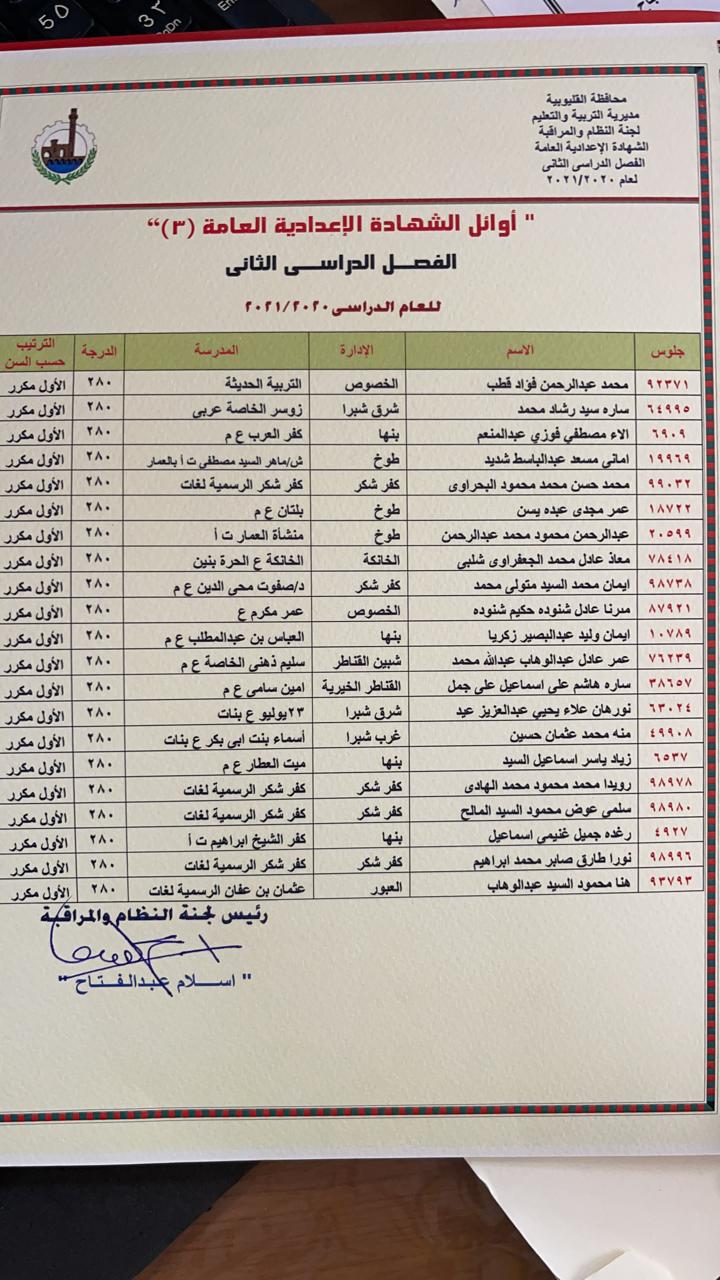 محافظة القليوبية
مديرية التربية والتعليم
لجنة النظام والمراقبة
الشهادة الإعدادية العامة
الفصل الدراسى الثانى
لعام ٢٠٢١/٢٠٢٠
" أوائل الشهادة الإعدادية العامة (٣)“
الفصل الدراسى الثانى
للعام الدراسى ٢٠٢١/٢٠٢٠
جلوس الاسم الإدارة المدرسة الدرجة الترتيب حسب السن
٩٢٣٧١ محمد عبدالرحمن فؤاد قطب الخصوص التربية الحديثة ٢٨٠ الأول مكرر
٦٤٩٩٥ ساره سيد رشاد محمد شرق شبرا زوسر الخاصة عربى ٢٨٠ الأول مكرر
٦٩٠٩ الاء مصطفي فوزي عبدالمنعم بنها كفر العرب ع م ٢٨٠ الأول مكرر
١٩٩٦٩ امانى مسعد عبدالباسط شديد طوخ ش/ماهر السيد مصطفى ت أ بالعمار ٢٨٠ الأول مكرر
٩٩٠٣٢ محمد حسن محمد محمود البحراوى كفر شكر كفر شكر الرسمية لغات ٢٨٠ الأول مكرر
١٨٧٢٢ عمر مجدى عبده يسن طوخ بلتان ع م ٢٨٠ الأول مكرر
٢٠٥٩٩ عبدالرحمن محمود محمد عبدالرحمن طوخ منشأة العمار ت أ ٢٨٠ الأول مكرر
٧٨٤١٨ معاذ عادل محمد الجعفراوى شلبى الخانكة الخانكة ع الحرة بنين ٢٨٠ الأول مكرر
٩٨٧٣٨ ايمان محمد السيد متولى محمد كفر شكر د/صفوت محى الدين ع م ٢٨٠ الأول مكرر
٨٧٩٢١ ميرنا عادل شنوده حكيم شنوده الخصوص عمر مكرم ع ٢٨٠ الأول مكرر
١٠٧٨٩ ايمان وليد عبدالبصير زكريا بنها العباس بن عبدالمطلب ع م ٢٨٠ الأول مكرر
٧٦٢٣٩ عمر عادل عبدالوهاب عبدالله محمد شبين القناطر سليم ذهنى الخاصة ع م ٢٨٠ الأول مكرر
٣٨٦٥٧ ساره هاشم على اسماعيل على جمل القناطر الخيرية امين سامى ع م ٢٨٠ الأول مكرر
٦٣٠٢٤ نورهان علاء يحيي عبدالعزيز عيد شرق شبرا ٢٣يوليو ع بنات ٢٨٠ الأول مكرر
٤٩٩٠٨ منه محمد عثمان حسين غرب شبرا أسماء بنت ابى بكر ع بنات ٢٨٠ الأول مكرر
٦٥٣٧ زياد ياسر اسماعيل السيد بنها ميت العطار ع م ٢٨٠ الأول مكرر
٩٨٩٧٨ رويدا محمد محمود محمد الهادى كفر شكر كفر شكر الرسمية لغات ٢٨٠ الأول مكرر
٩٨٩٨٠ سلمى عوض محمود السيد المالح كفر شكر كفر شكر الرسمية لغات ٢٨٠ الأول مكرر
٤٩٢٧ رغده جميل غنيمى اسماعيل بنها كفر الشيخ ابراهيم ت أ ٢٨٠ الأول مكرر
٩٨٩٩٦ نورا طارق صابر محمد ابراهيم كفر شكر كفر شكر الرسمية لغات ٢٨٠ الأول مكرر
٩٣٧٩٣ هنا محمود السيد عبدالوهاب العبور عثمان بن عفان الرسمية لغات ٢٨٠ الأول مكرر
رئيس لجنة النظام والمراقبة
" اسلام عبدالفتاح "